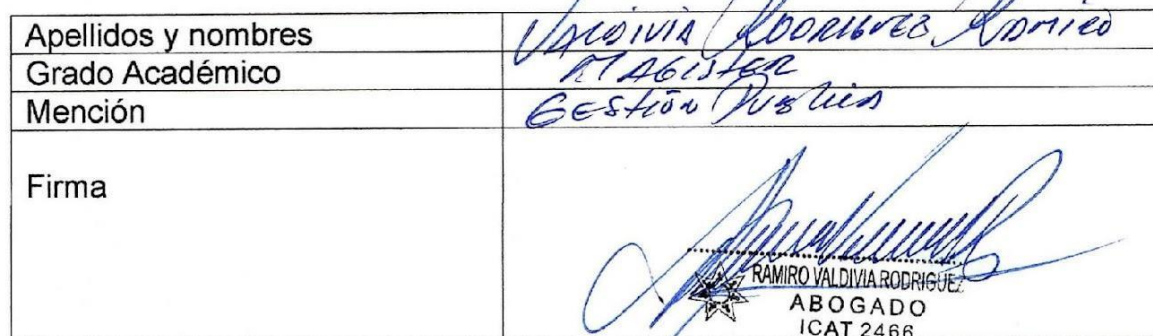 Apellidos y nombres VALDIVIA RODRIGUEZ RAMIRO
Grado Académico MAGISTER
Mención GESTIÓN PUBLICA
Firma
RAMIRO VALDIVIA RODRIGUEZ
ABOGADO
ICAT 2466